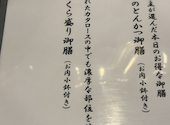 が選んだ本日のお得な御膳
のとんかつ御膳（お肉小鉢付き）
れたカタロースの中でも濃厚な部位を
くら盛り御膳（お肉小鉢付き）